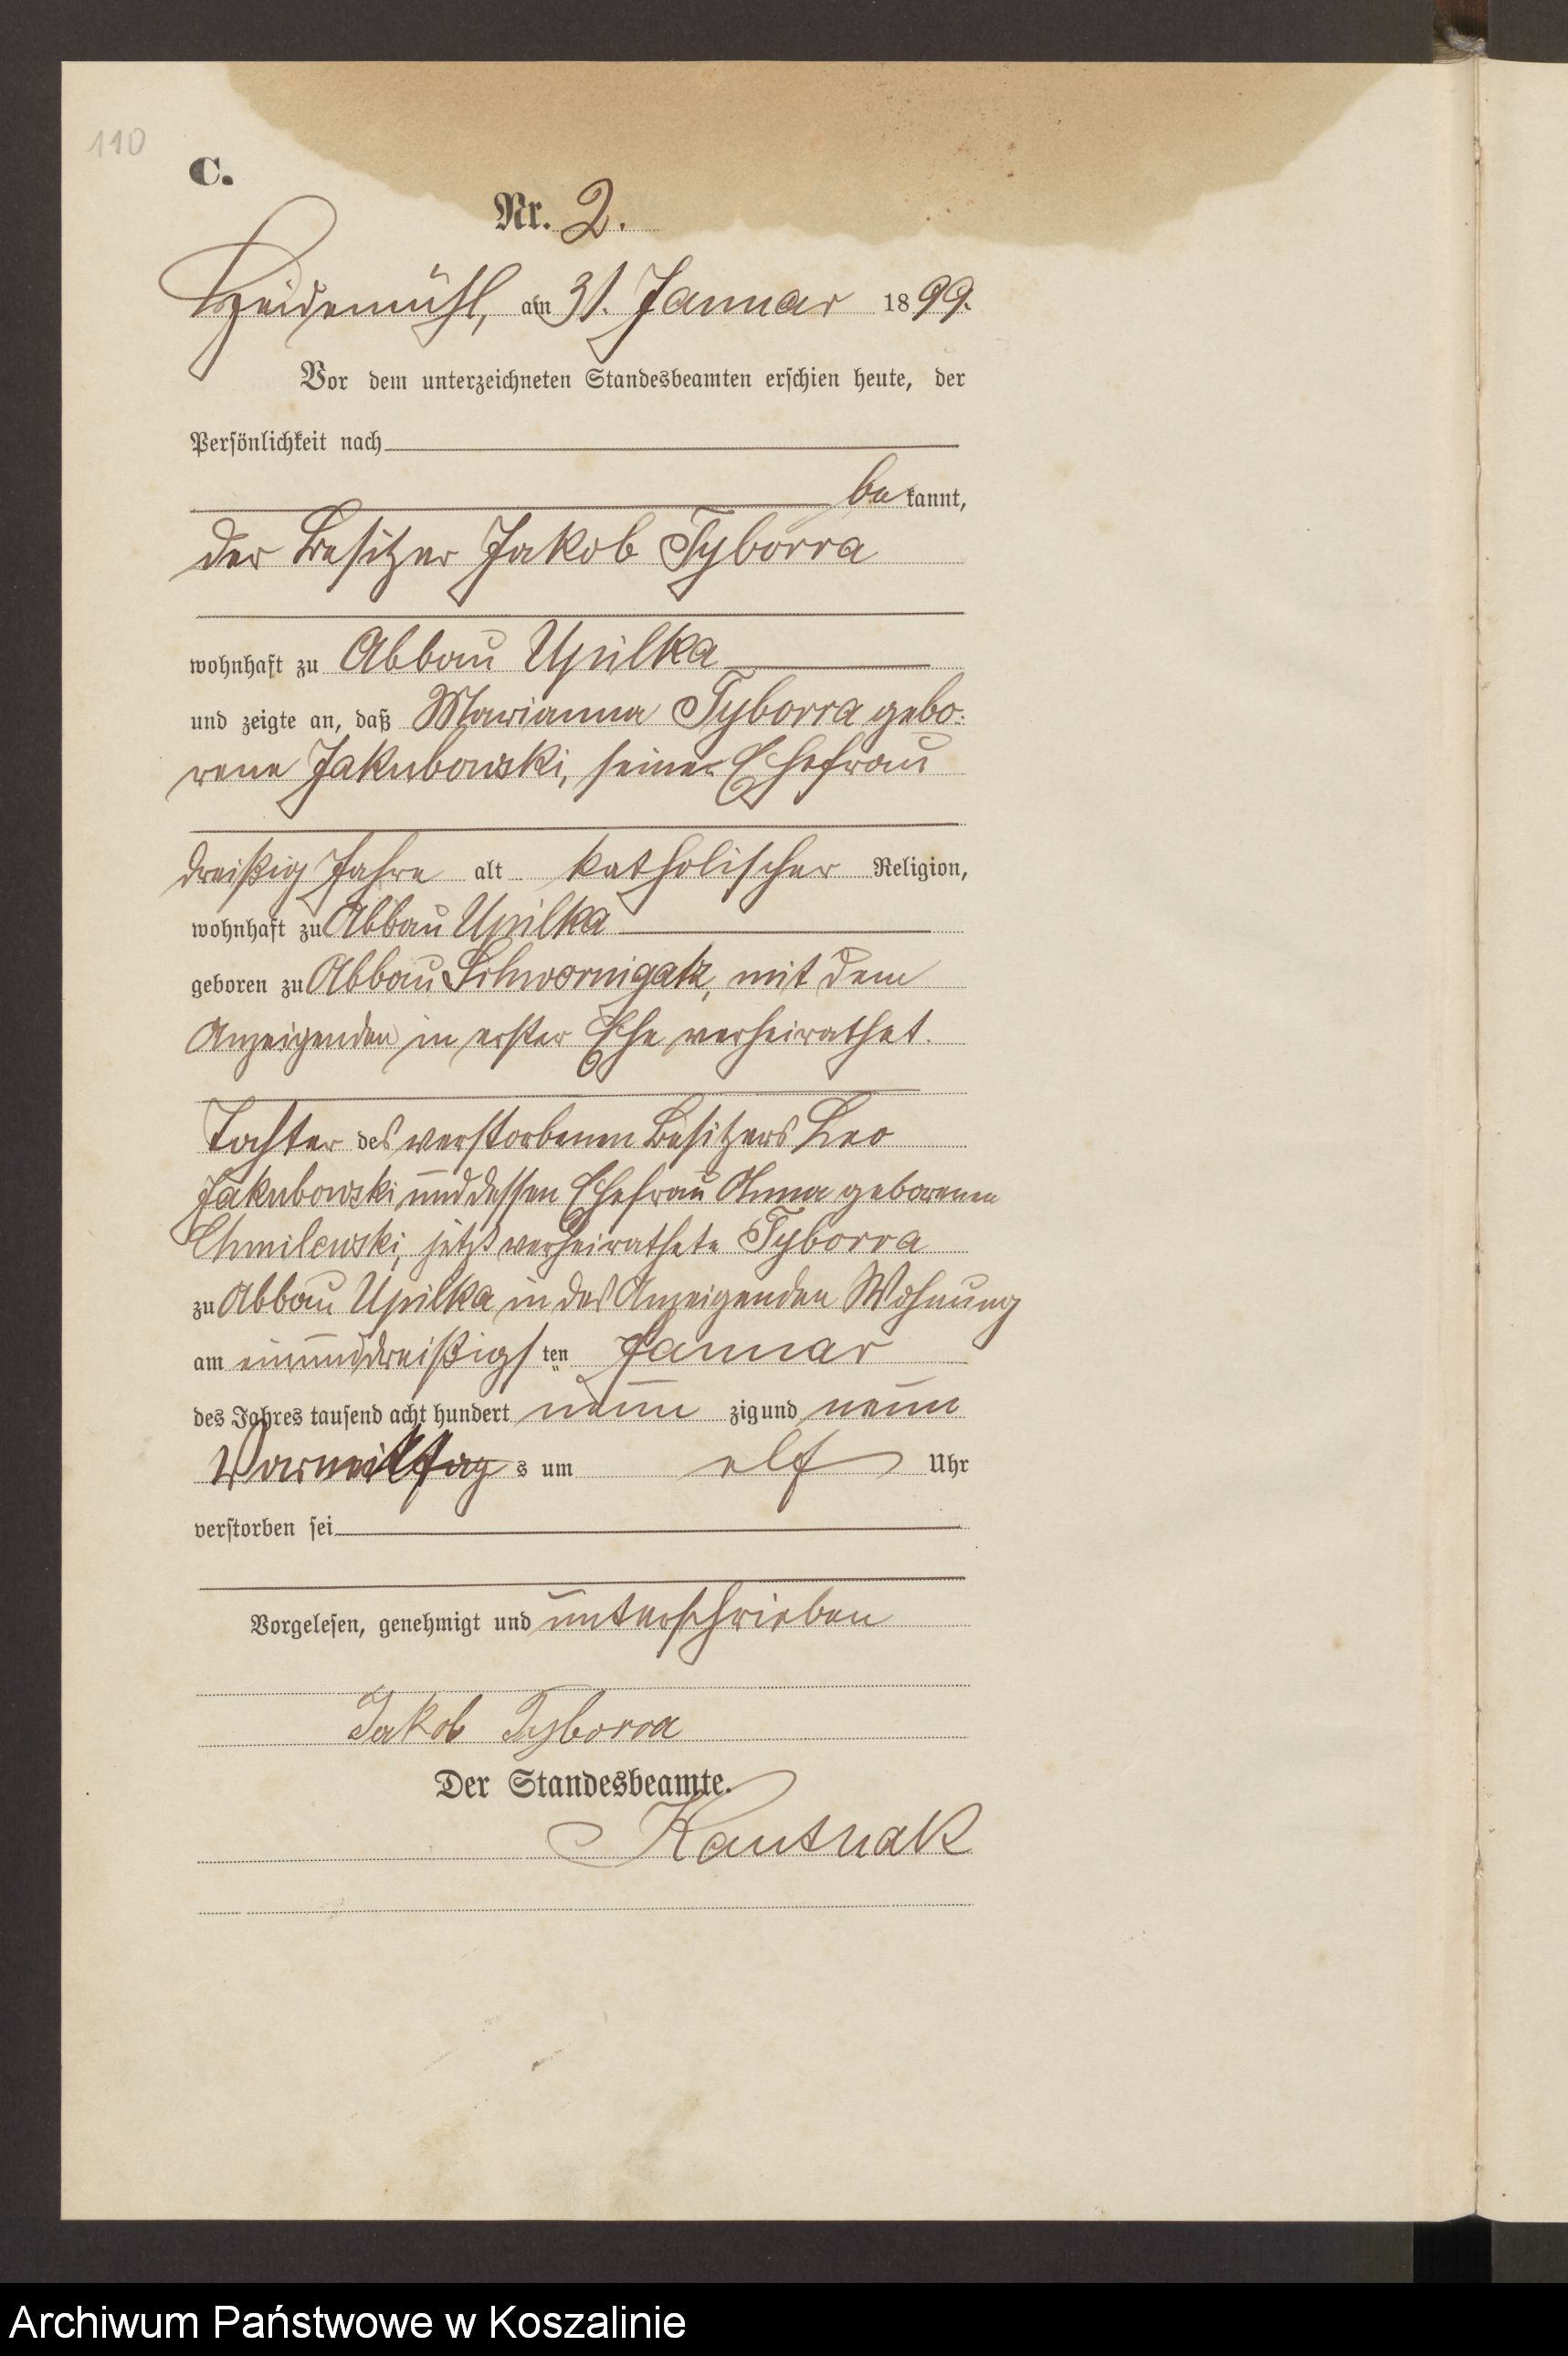 110
C.
Nr. 2.
Heidemühl, am 31. Januar 1899.
Vor dem unterzeichneten Standesbeamten erschien heute, der
Persönlichkeit nach
bekannt,
der Besitzer Jakob Tyborra
wohnhaft zu Abbau Upilka
und zeigte an, daß Marianna Tyborra gebo:
rene Jakubowski, seiner Ehefrau
dreißig Jahre alt katholischer Religion,
wohnhaft zu Abbau Upilka
geboren zu Abbau Schwornigatz, mit dem
Anzeigenden in erster Ehe verheirathet.
Tochter des verstorbenen Besitzers Leo
Jakubowski und dessen Ehefrau Anna geborenen
Chmilewski, jetzt verheirathete Tyborra
zu Abbau Upilka in des Anzeigenden Wohnung
am einunddreißigsten Januar
des Jahres tausend acht hundert neunzig und neun
Vormittags um elf Uhr
verstorben sei
Vorgelesen, genehmigt und unterschrieben
Jakob Tyborra
Der Standesbeamte.
Kautnak
Archiwum Państwowe w Koszalinie